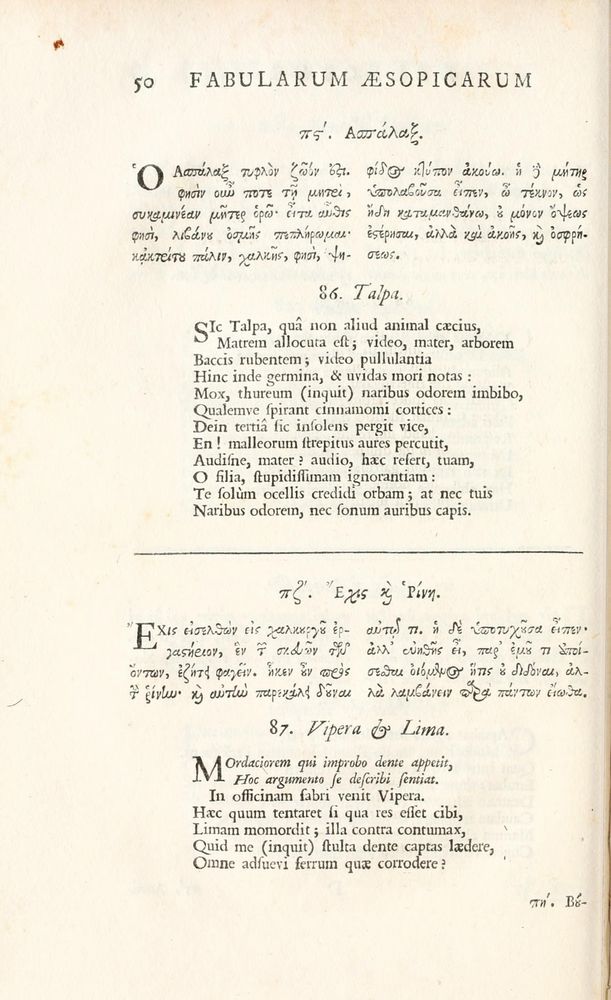 50 FABULARUM ÆSOPICARUM
πϛʹ. Ασπάλαξ.
Ὁ Ασπάλαξ τυφλὸν ζῶόν ἐςι.
φησὶν οὖν ποτε τῇ μητεὶ,
συκαμινέαν μῆτερ ὁρῶ· εἶτα αὖθις
φησὶ, λιβάνου ὀσμῆς πεπλήρωμαι·
κἀκτείτου πάλιν, χαλκῆς, φησὶ, ψη-
φίδος κτύπον ἀκούω. ἡ δὲ μήτηρ
ὑπολαβοῦσα εἶπεν, ὦ τέκνον, ὡς
ἤδη καταμανθάνω, οὐ μόνον ὄψεως
ἐςέρησαι, ἀλλὰ καὶ ἀκοῆς, καὶ ὀσφρή-
σεως.
86. Talpa.
SIc Talpa, quâ non aliud animal cæcius,
Matrem allocuta eſt; video, mater, arborem
Baccis rubentem; video pullulantia
Hinc inde germina, & uvidas mori notas :
Mox, thureum (inquit) naribus odorem imbibo,
Qualemve ſpirant cinnamomi cortices :
Dein tertiâ ſic inſolens pergit vice,
En ! malleorum ſtrepitus aures percutit,
Audiſne, mater ? audio, hæc refert, tuam,
O filia, ſtupidiſſimam ignorantiam :
Te ſolùm ocellis credidi orbam; at nec tuis
Naribus odorem, nec ſonum auribus capis.
πζʹ. Ἔχις καὶ Ῥίνη.
ἜΧις εἰσελθὼν εἰς χαλκουργοῦ ἐρ-
γαςήειον, ἓν τῶν σκευῶν τῶν
ὄντων, ἐζήτει φαγεῖν. ἧκεν οὖν πρὸς
τὴν ῥίνην· καὶ αὐτὴν παρεκάλει δοῦναι
αὐτῷ τι. ἡ δὲ ὑποτυχοῦσα εἶπεν·
ἀλλ' εὐήθης εἶ, παρ' ἐμοῦ τι ἀποί-
σεσθαι οἰόμενος ἥτις οὐ διδόναι, ἀλ-
λὰ λαμβάνειν παρὰ πάντων εἴωθα.
87. Vipera & Lima.
MOrdaciorem qui improbo dente appetit,
Hoc argumento ſe deſcribi ſentiat.
In officinam fabri venit Vipera.
Hæc quum tentaret ſi qua res eſſet cibi,
Limam momordit; illa contra contumax,
Quid me (inquit) ſtulta dente captas lædere,
Omne adſuevi ferrum quæ corrodere ?
πηʹ. Βού-